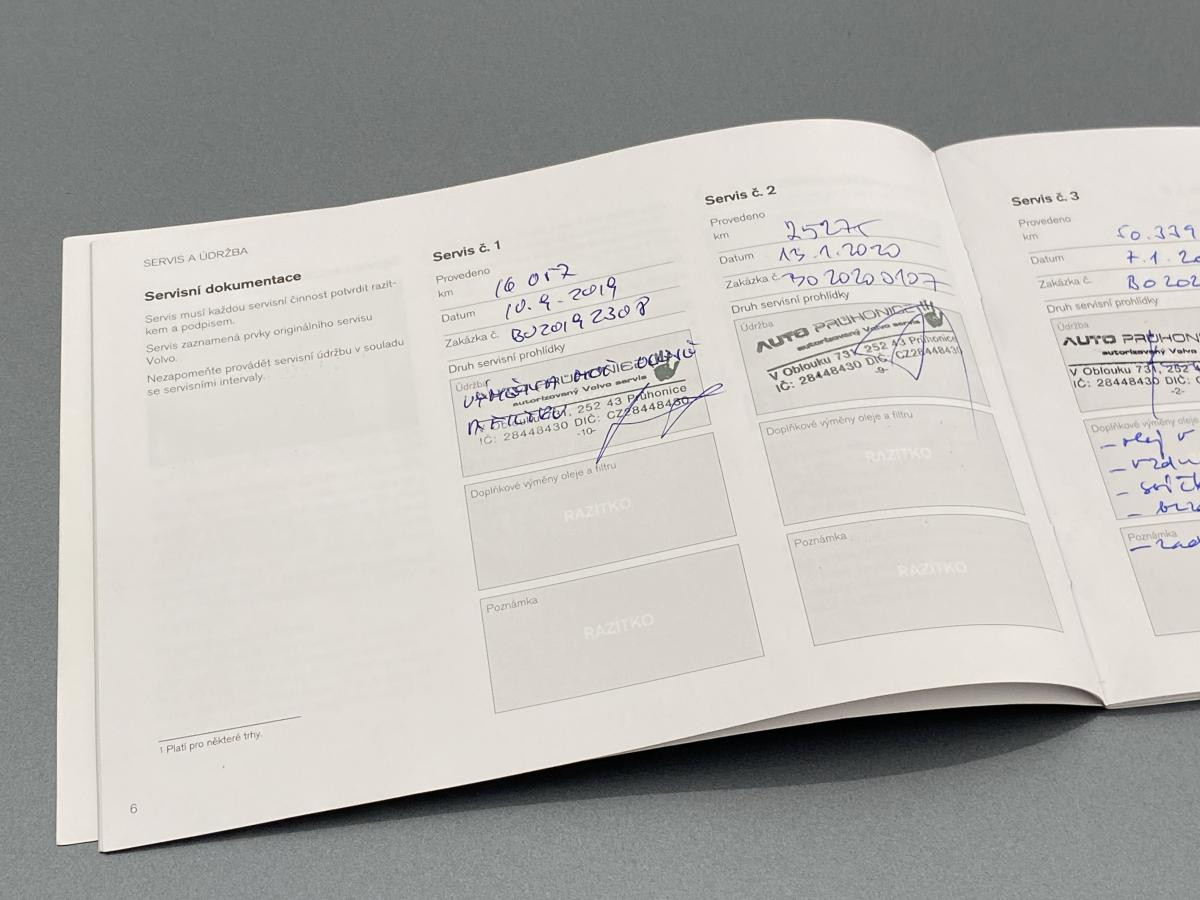 SERVIS A ÚDRŽBA
Servisní dokumentace
Servis musí každou servisní činnost potvrdit razít-
kem a podpisem.
Servis zaznamená prvky originálního servisu
Volvo.
Nezapomeňte provádět servisní údržbu v souladu
se servisními intervaly.
1 Platí pro některé trhy.
6
Servis č. 1
Provedeno
km 16 057
Datum 10.9.2019
Zakázka č. BO2019 2308
Druh servisní prohlídky
Údržba
VÝMĚNA
PRŮHONICE
autorizovaný Volvo servis
252 43 Průhonice
IČ: 28448430 DIČ: CZ28448430
-10-
Doplňkové výměny oleje a filtru
RAZÍTKO
Poznámka
RAZÍTKO
Servis č. 2
Provedeno
km 25275
Datum 13.1.2020
Zakázka č. BO 2020 0107
Druh servisní prohlídky
Údržba
AUTO PRŮHONICE
autorizovaný Volvo servis
V Oblouku 731, 252 43 Průhonice
IČ: 28448430 DIČ: CZ28448430
-9-
Doplňkové výměny oleje a filtru
RAZÍTKO
Poznámka
RAZÍTKO
Servis č. 3
Provedeno
km 50.339
Datum 7.1.20
Zakázka č. BO 202
Druh servisní prohlídky
Údržba
AUTO PRŮHONI
autorizovaný Volvo
V Oblouku 731, 252 4
IČ: 28448430 DIČ: C
-2-
Doplňkové výměny oleje
- olej v
- vzdu
- svíčk
- brz
Poznámka
- zad